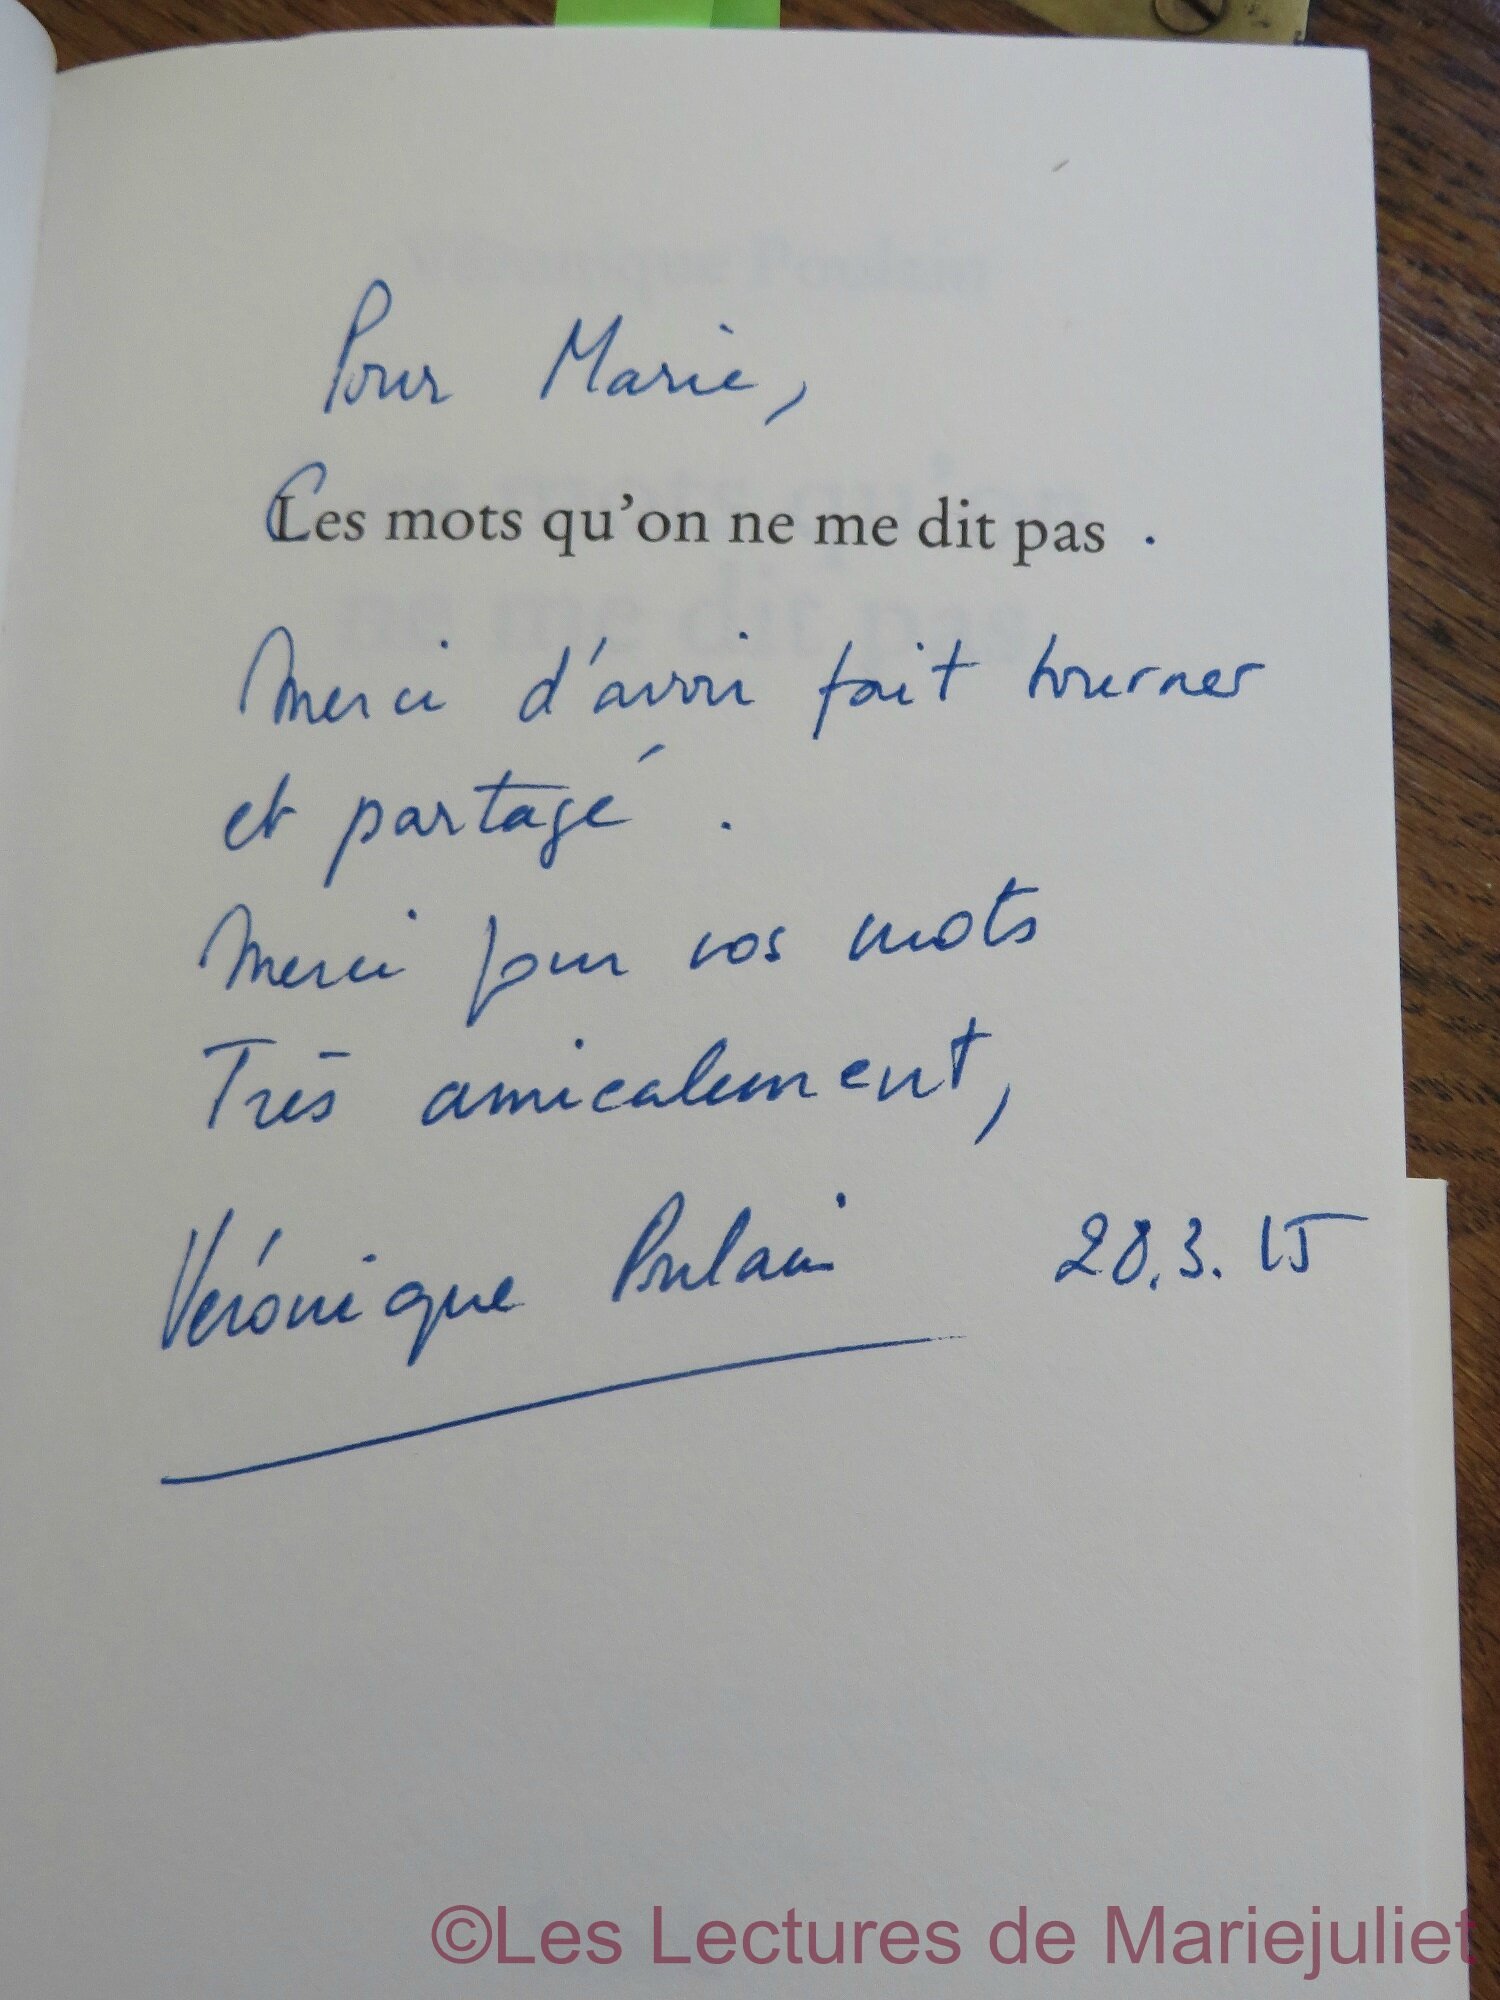 Pour Marie,
Ces mots qu'on ne me dit pas .
Merci d'avoir fait tourner
et partagé .
Merci pour vos mots
Très amicalement,
Véronique Poulain 28.3.15
©Les Lectures de Mariejuliet